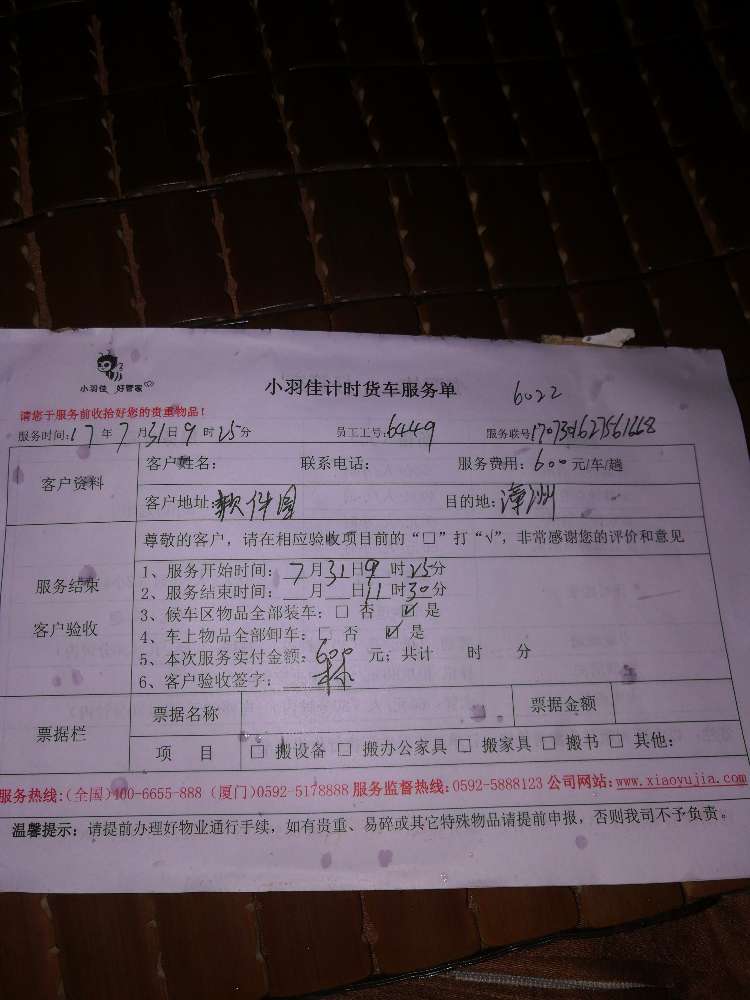 小羽佳 好管家
小羽佳计时货车服务单
6022
请您于服务前收拾好您的贵重物品！
服务时间：17年7月31日9时25分 员工工号：6449 服务联号
客户资料
客户姓名： 联系电话： 服务费用：600元/车/趟
客户地址：软件园 目的地：漳州
服务结束
客户验收
尊敬的客户，请在相应验收项目前的“□”打“√”，非常感谢您的评价和意见
1、服务开始时间：7月31日9时25分
2、服务结束时间： 月 日11时30分
3、候车区物品全部装车：□ 否 ☑ 是
4、车上物品全部卸车：□ 否 ☑ 是
5、本次服务实付金额：600元；共计 时 分
6、客户验收签字：林
票据栏
票据名称 票据金额
项 目 □ 搬设备 □ 搬办公家具 □ 搬家具 □ 搬书 □ 其他：
服务热线：(全国)400-6655-888 (厦门)0592-5178888 服务监督热线：0592-5888123 公司网站：www.xiaoyujia.com
温馨提示：请提前办理好物业通行手续，如有贵重、易碎或其它特殊物品请提前申报，否则我司不予负责。